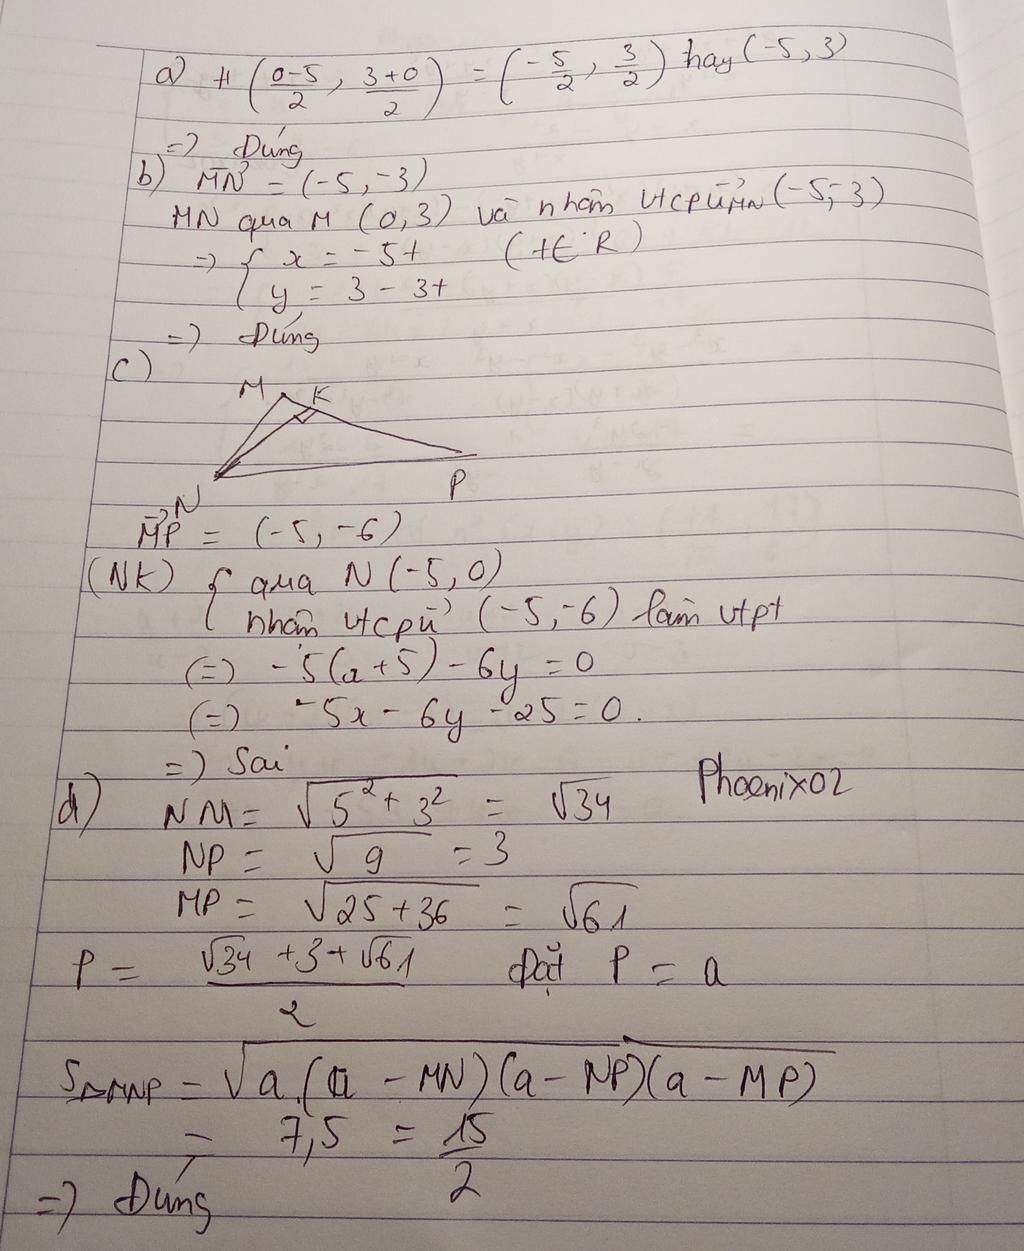 a) H (0-5/2, 3+0/2) = (-5/2, 3/2) hay (-5, 3)
=> Đúng
b) MN = (-5, -3)
MN qua M (0,3) và nhận vtcp u MN (-5,-3)
=> { x = -5t (t ∈ R)
y = 3 - 3t
=> Đúng
c)
M K
N P
MP = (-5, -6)
(NK) { qua N (-5, 0)
nhận vtcp u (-5, -6) làm vtpt
(=) -5(x+5) - 6y = 0
(=) -5x - 6y - 25 = 0.
=> Sai
Phoenix02
d) NM = √5² + 3² = √34
NP = √9 = 3
MP = √25+36 = √61
P = √34 + 3 + √61 / 2 Đặt P = a
S△MNP = √a.(a - MN)(a - NP)(a - MP)
= 7,5 = 15/2
=> Đúng